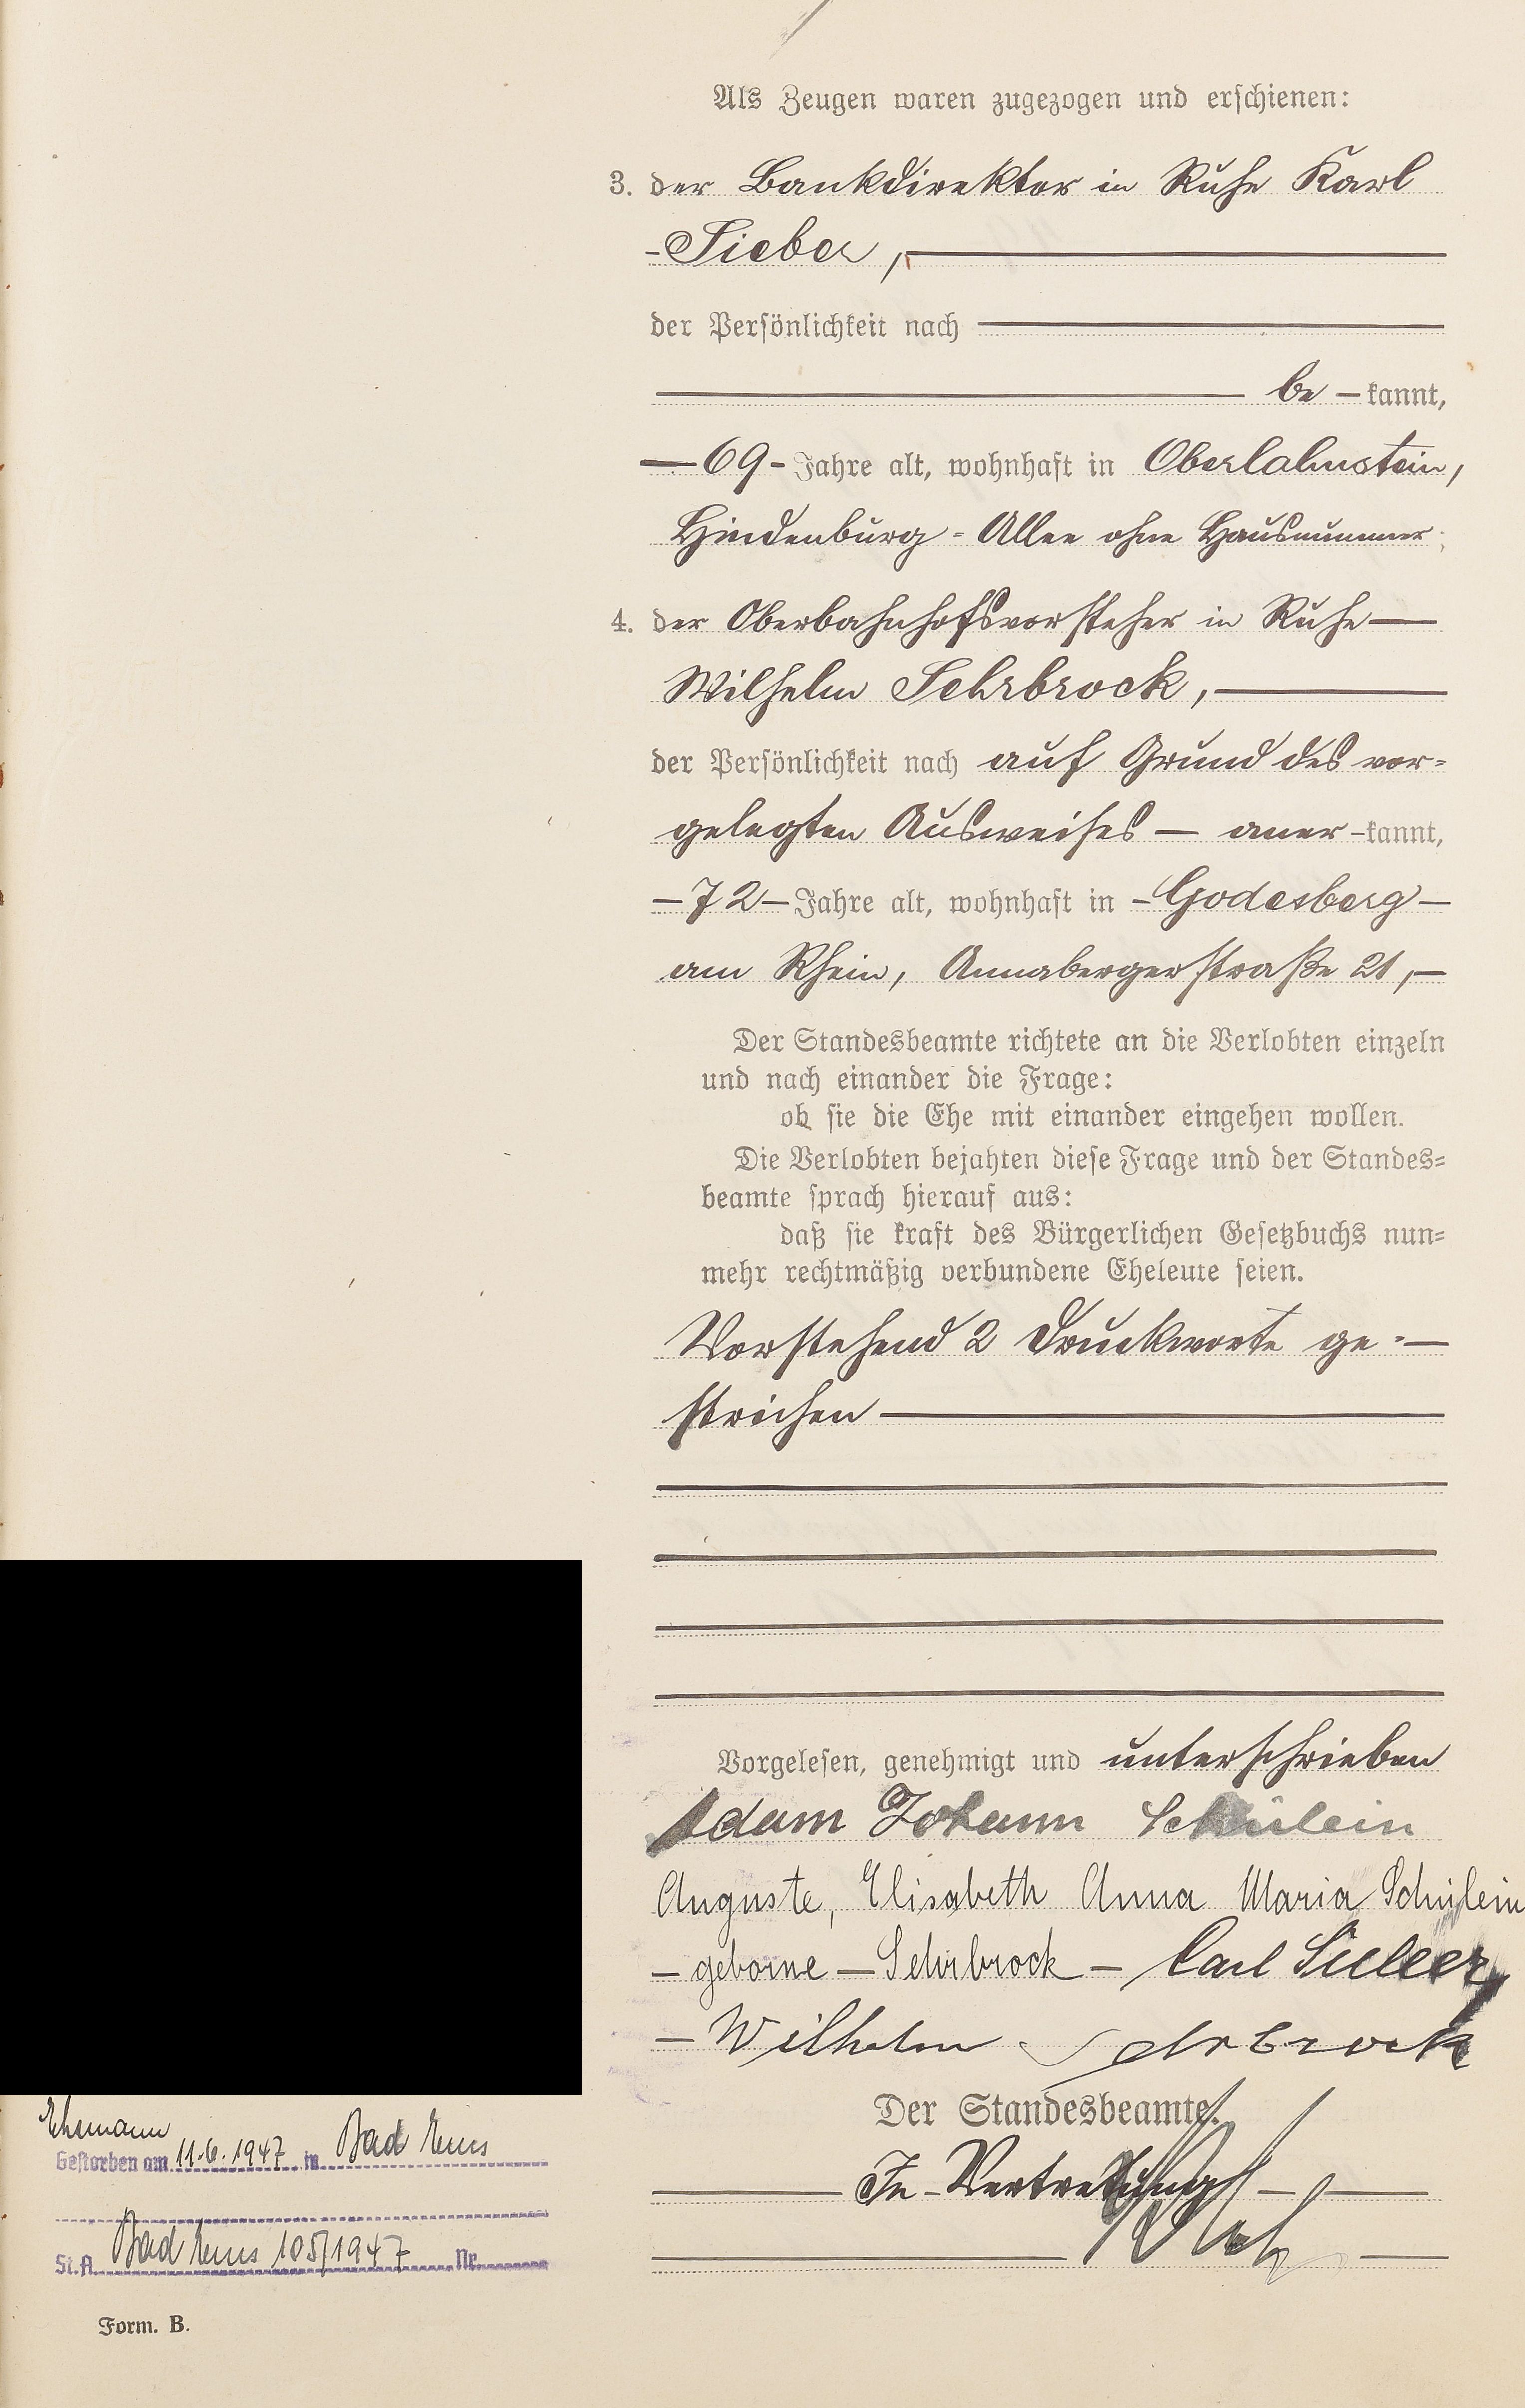 Als Zeugen waren zugezogen und erschienen:
3. der Bankdirektor in Ruhe Karl
- Sieber,
der Persönlichkeit nach
be - kannt,
- 69 - Jahre alt, wohnhaft in Oberlahnstein,
Hindenburg - Allee ohne Hausnummer;
4. der Oberbahnhofsvorsteher in Ruhe —
Wilhelm Sehrbrock,
der Persönlichkeit nach auf Grund des vor=
gelegten Ausweises — aner - kannt,
- 72 - Jahre alt, wohnhaft in - Godesberg -
am Rhein, Annabergerstraße 21, -
Der Standesbeamte richtete an die Verlobten einzeln
und nach einander die Frage:
ob sie die Ehe mit einander eingehen wollen.
Die Verlobten bejahten diese Frage und der Standes=
beamte sprach hierauf aus:
daß sie kraft des Bürgerlichen Gesetzbuchs nun=
mehr rechtmäßig verbundene Eheleute seien.
Vorstehend 2 Druckworte ge = -
strichen
Vorgelesen, genehmigt und unterschrieben
Adam Johann Schülein
Auguste, Elisabeth Anna Maria Schülein
- geborne - Sehrbrock - Carl Sieber,
- Wilhelm Sehrbrock
Der Standesbeamte.
In Vertretung
Ehemann
Gestorben am 11.6.1947 in Bad Ems
St.A. Bad Ems 105/1947 Nr.
Form. B.